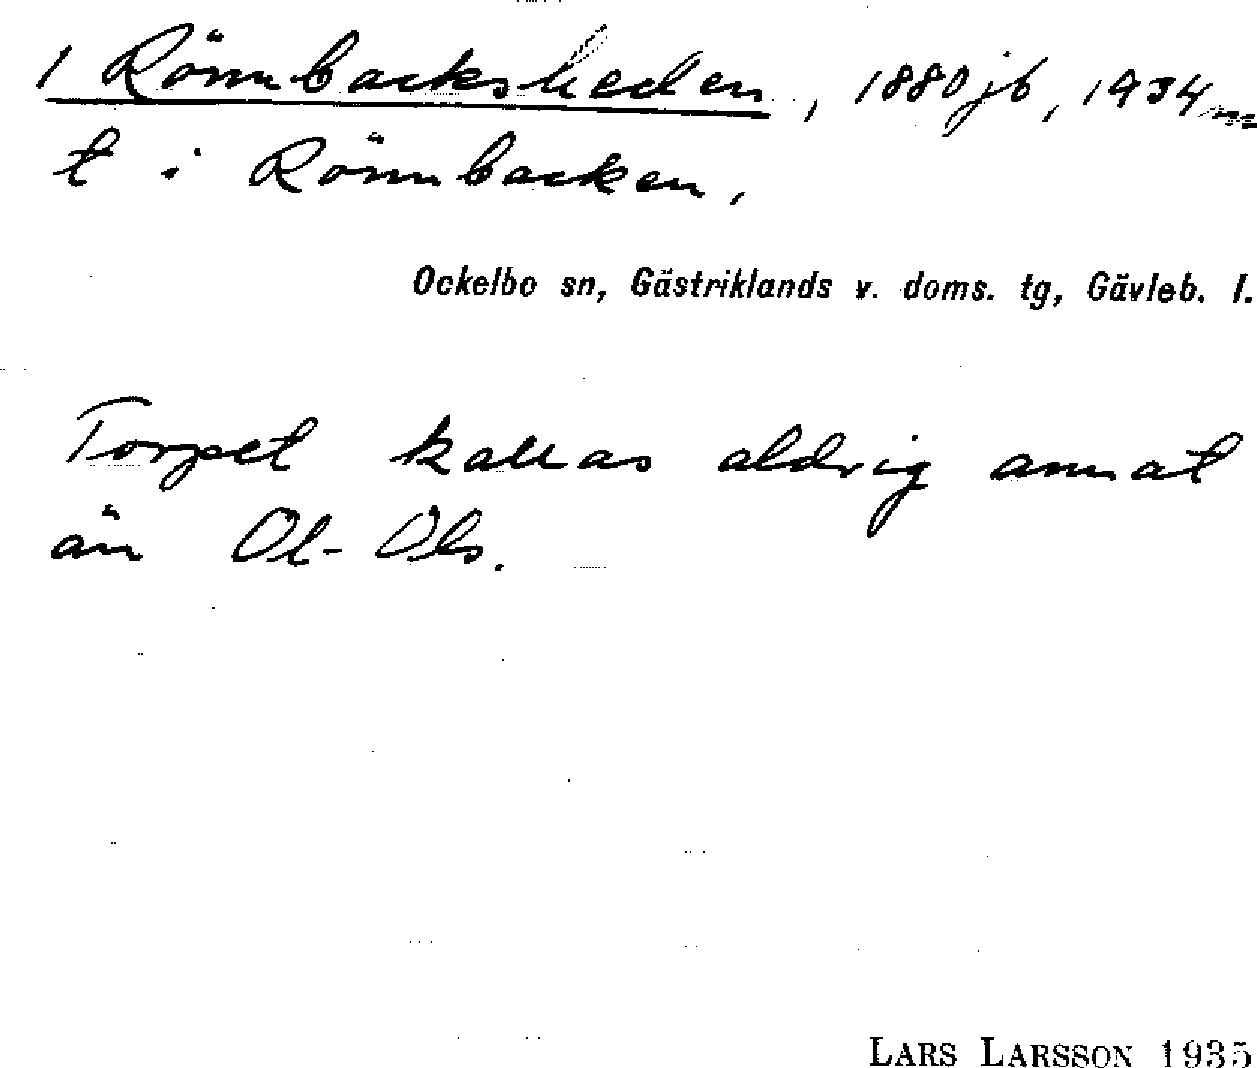 / Rönnbacksheden, 1880 jb, 1934 m
t i Rönnbacken,
Ockelbo sn, Gästriklands v. doms. tg, Gävleb. l.
Torpet kallas aldrig annat
än Ol-Ols.
LARS LARSSON 1935